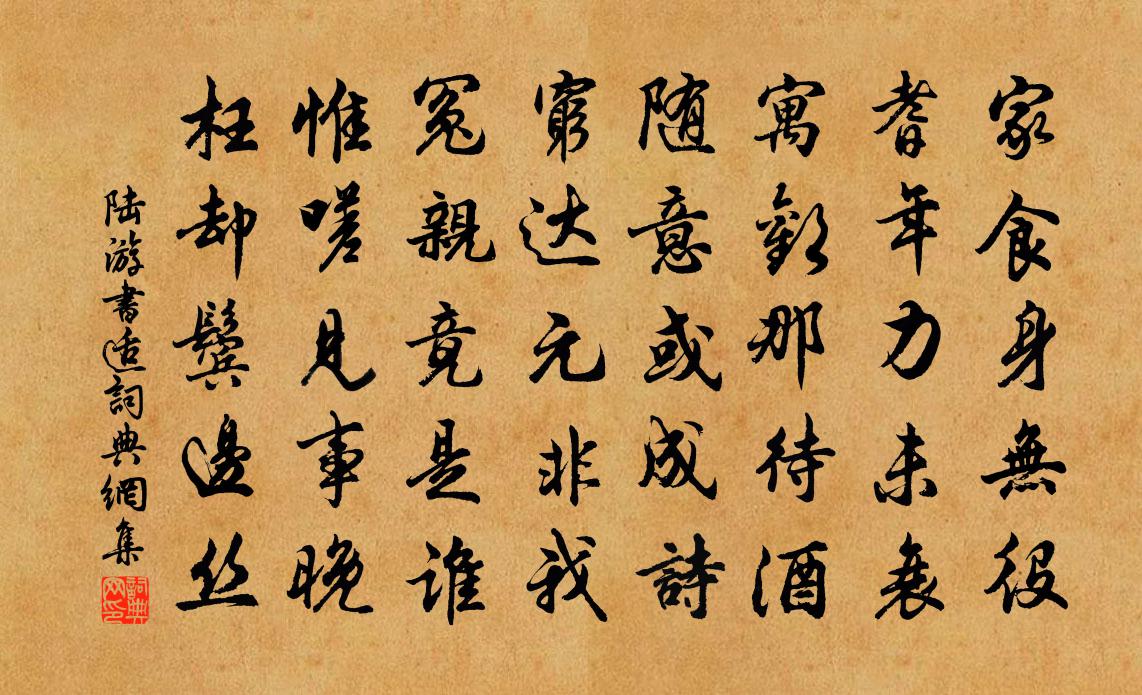 家食身無役
耆年力未衰
寓歡那待酒
随意或成詩
窮达元非我
冤親竟是谁
惟嗟見事晚
枉却鬓邊丝
陆游書适詞典網集
詞典网印